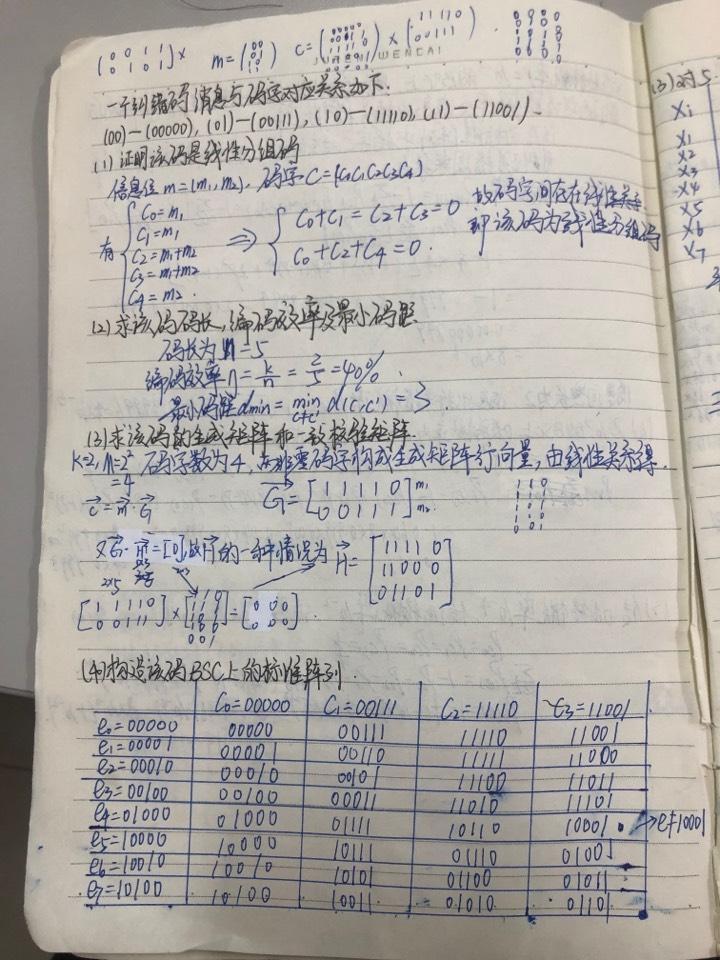 (0011
0101)× m=(00
01
10
11) C=(00000
00111
11110
11001)×(11110
00111)
JUREN WENCAI
一个纠错码消息与码字对应关系如下.
(00)—(00000), (01)—(00111), (10)—(11110), (11)—(11001).
(1) 证明该码是线性分组码
信息位 m=(m₁,m₂), 码字C=(C₀C₁C₂C₃C₄)
有 { C₀=m₁
C₁=m₁
C₂=m₁+m₂
C₃=m₁+m₂
C₄=m₂.
⇒ { C₀+C₁=C₂+C₃=0
C₀+C₂+C₄=0.
故码字间存在线性关系
即该码为线性分组码
(2) 求该码码长, 编码效率及最小码距
码长为n=5
编码效率η=k/n=2/5=40%.
最小码距dmin=min d(C,C')=3
C≠C'
(3)求该码的生成矩阵和一致校验矩阵.
k=2, M=2²=4 码字数为4, 由非零码字构成生成矩阵行向量, 由线性关系得.
C=m·G G=[11110
00111] m₁
m₂
又G·H=[0],故H的一种情况为 H=[11110
11000
01101]
2×5 2×3
[11110
00111]×[110
001]=[000
000].
(4)构造该码BSC上的标准阵列.
C₀=00000 C₁=00111 C₂=11110 C₃=11001
e₀=00000 00000 00111 11110 11001
e₁=00001 00001 00110 11111 11000
e₂=00010 00010 00101 11100 11011
e₃=00100 00100 00011 11010 11101
e₄=01000 01000 01111 10110 10001 → e≠10001
e₅=10000 10000 10111 01110 01001
e₆=10010 10010 10101 01100 01011
e₇=10100 10100 10011 01010 01101
(3) 对S
Xi
X₁
X₂
X₃
X₄
X₅
X₆
X₇